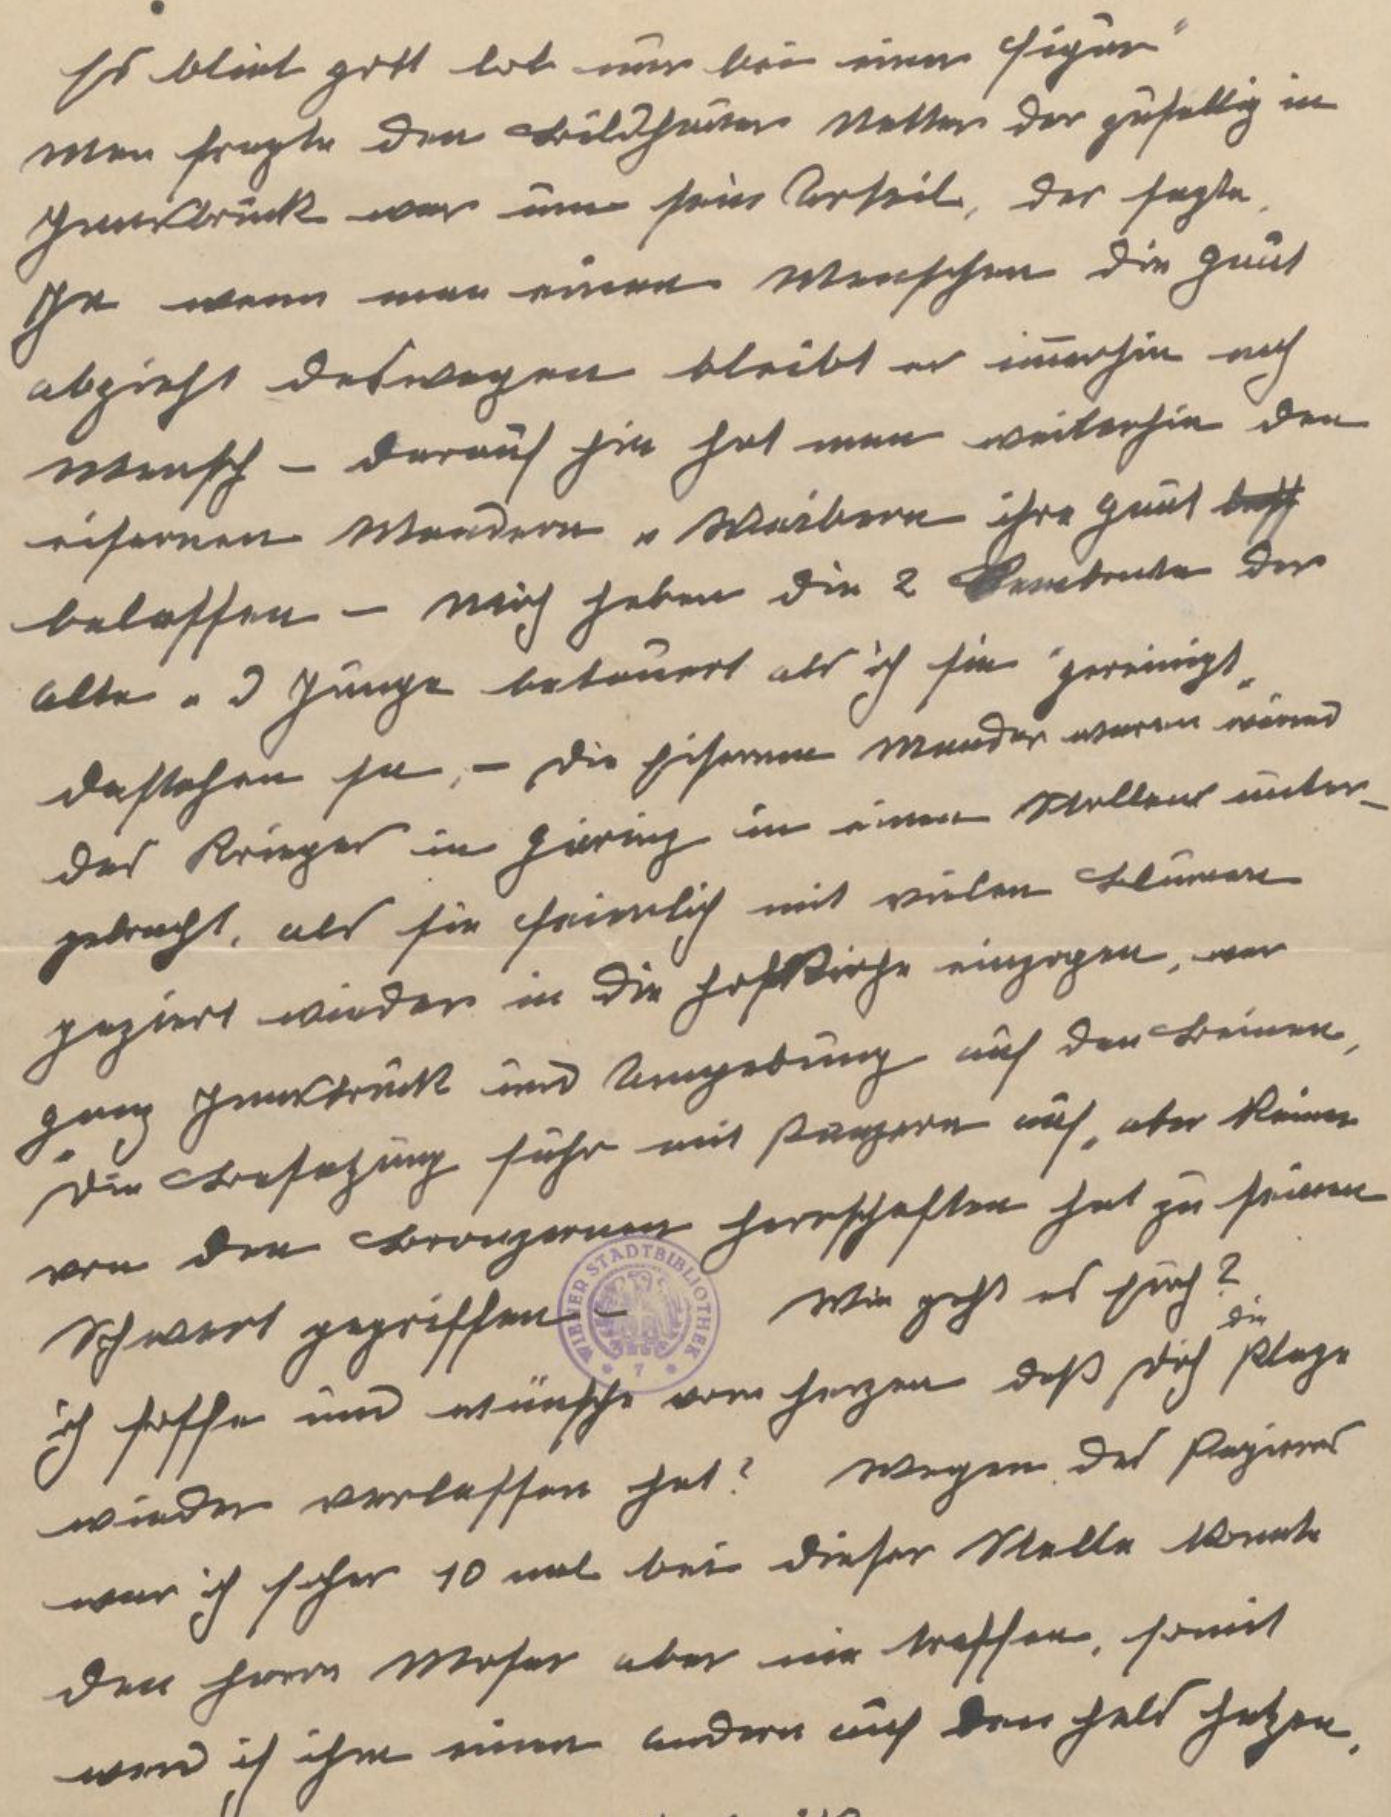 Es bliebt gott lob nur bei einer Figur"
Man fragte den Bildhauer Netter der zufällig in
Innsbruck war um sein Urteil, der sagte,
Ja wenn man einen Menschen die Haut
abzieht deswegen bleibt er immerhin noch
Mensch – darauf hin hat man weiterhin den
eisernen Mandern u Weibern ihre Haut
belassen – Mich haben die 2 der
alte u d Junge betauert als ich sie "gereinigt"
dastehen sa, – die Eisernen Mander waren wärend
des Krieges in in einen Stollen unter-
gebracht, als sie feierlich mit vielen Blumen
geziert wieder in die Hofkirche einzogen, war
ganz Innsbruck und Umgebung auf den Beinen,
die Besatzung fuhr mit Panzern auf, aber keiner
von den Bronzernen Herrschaften hat zu seinem
Schwert gegriffen – Wie geht es Euch?
ich hoffe und wünsche vom Herzen daß Dich die Plage
wieder verlassen hat? Wegen des Papieres
war ich schon 10 mal bei dieser Stelle konnte
den Herrn Moser aber nie treffen, somit
werd ich ihm einen andern auf den Hals hetzen.
WIENER STADTBIBLIOTHEK
7